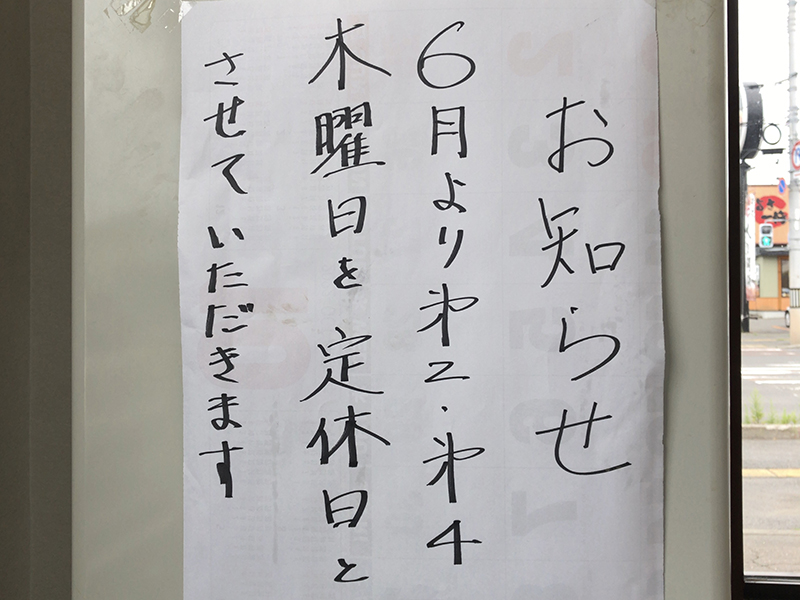 お知らせ
6月より㐧2・㐧4
木曜日を定休日と
させていただきます